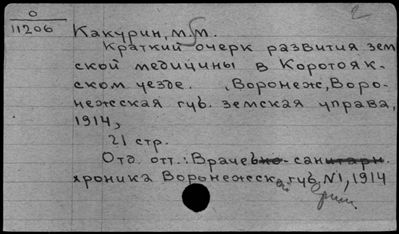 0
11206
Какурин, М М.
Краткий очерк развития зем
ской медицины в Коротояк-
ском уезде. Воронеж, Воро-
нежская губ. земская управа,
1914,
21 стр.
Отд. отт.: Врачебно-санитарн.
хроника Воронежск. губ. N1, 1914